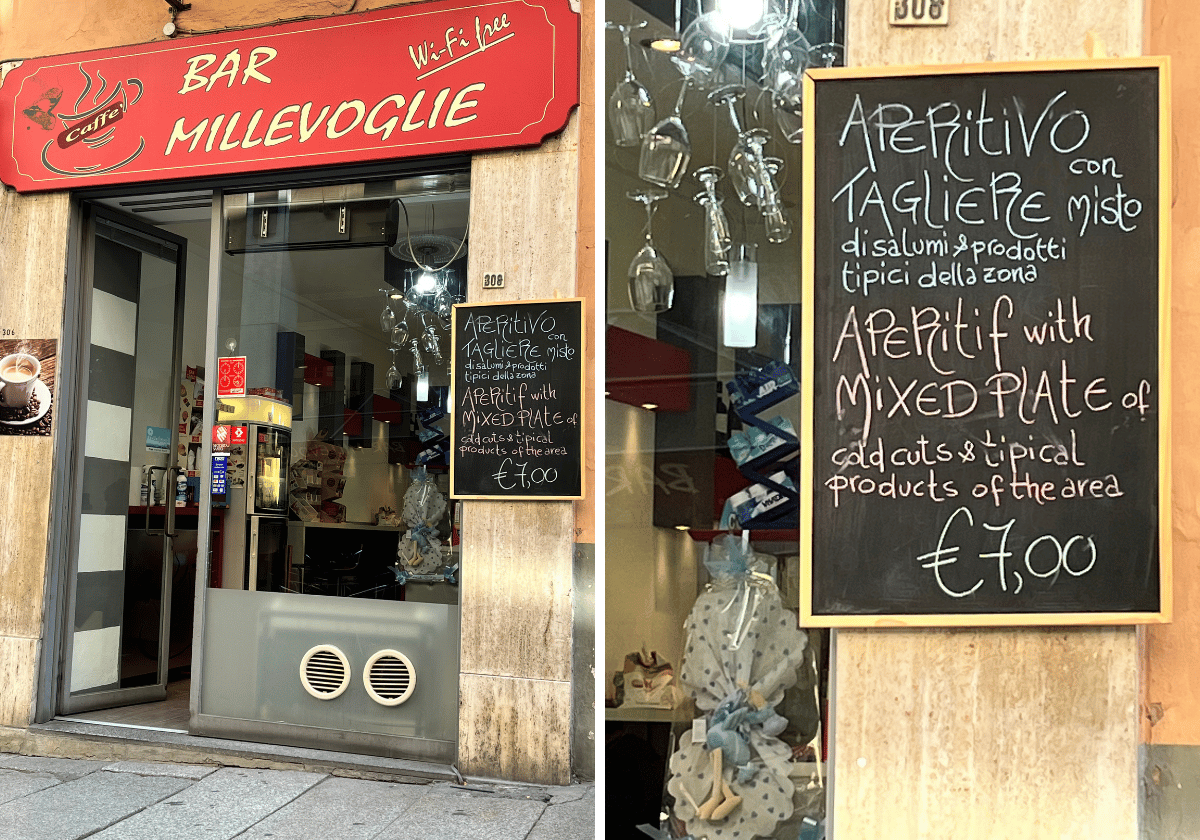 BAR
MILLEVOGLIE
Wi-Fi free
Caffè
306
308
APERITIVO
con
TAGLIERE misto
di salumi & prodotti
tipici della zona
APERitif with
MIXED PLATE of
cold cuts & tipical
products of the area
€7,00
308
APERITIVO
con
TAGLIERE misto
di salumi & prodotti
tipici della zona
APERitif with
MIXED PLATE of
cold cuts & tipical
products of the area
€7,00
AIR
BAR